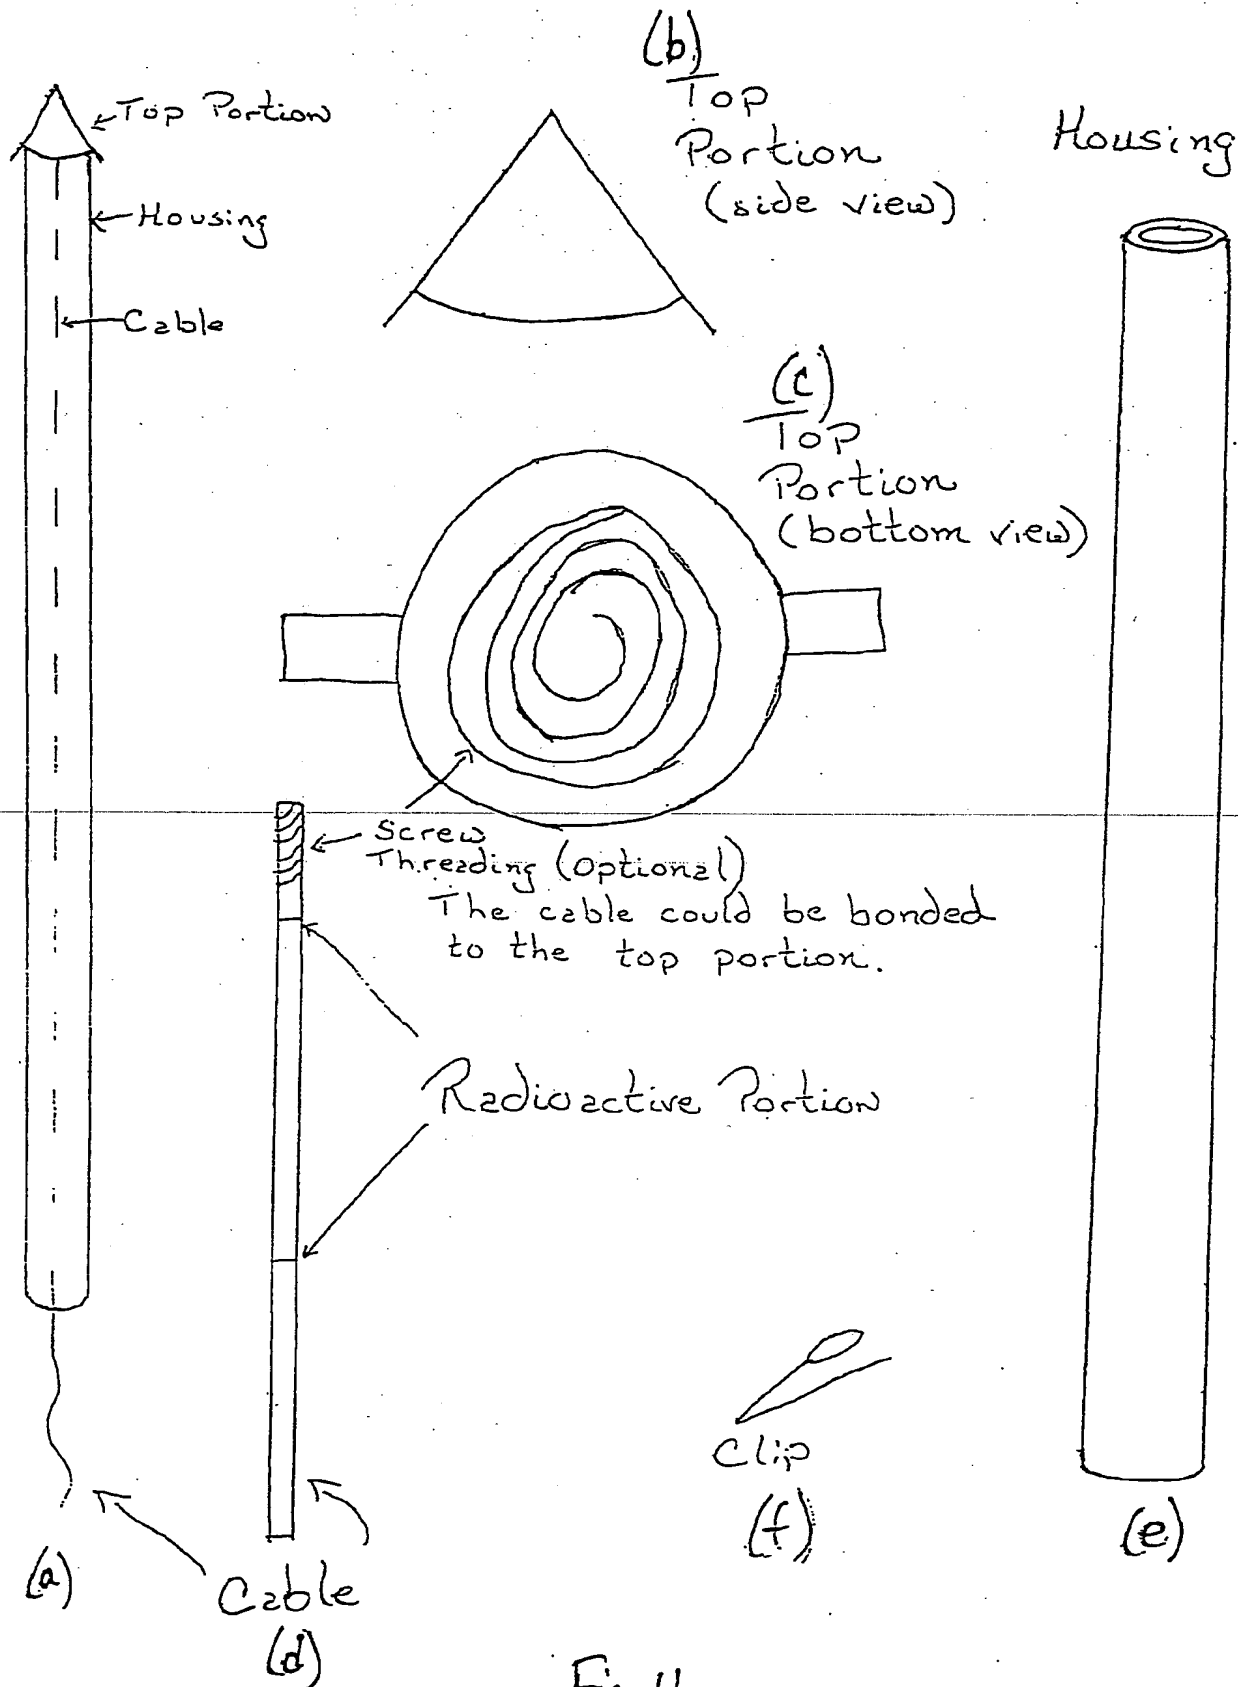 (b)
Top
Portion
(side view)
Top Portion
Housing
Cable
Housing
(c)
Top
Portion
(bottom view)
Screw
Threading (optional)
The cable could be bonded
to the top portion.
Radioactive Portion
Clip
(f)
(e)
(a)
Cable
(d)